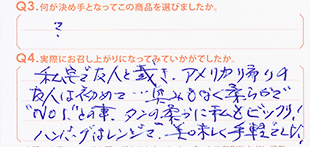 Q3.何が決め手となってこの商品を選びましたか。
?
Q4.実際にお召し上がりになってみていかがでしたか。
私宅で友人と戴き、アメリカ帰りの
友人は初めて…臭みもなく柔らかで
"NO1."との事、タンの柔らかに私もビックリ!
ハンバーグはレンジで、美味しく手軽でした!